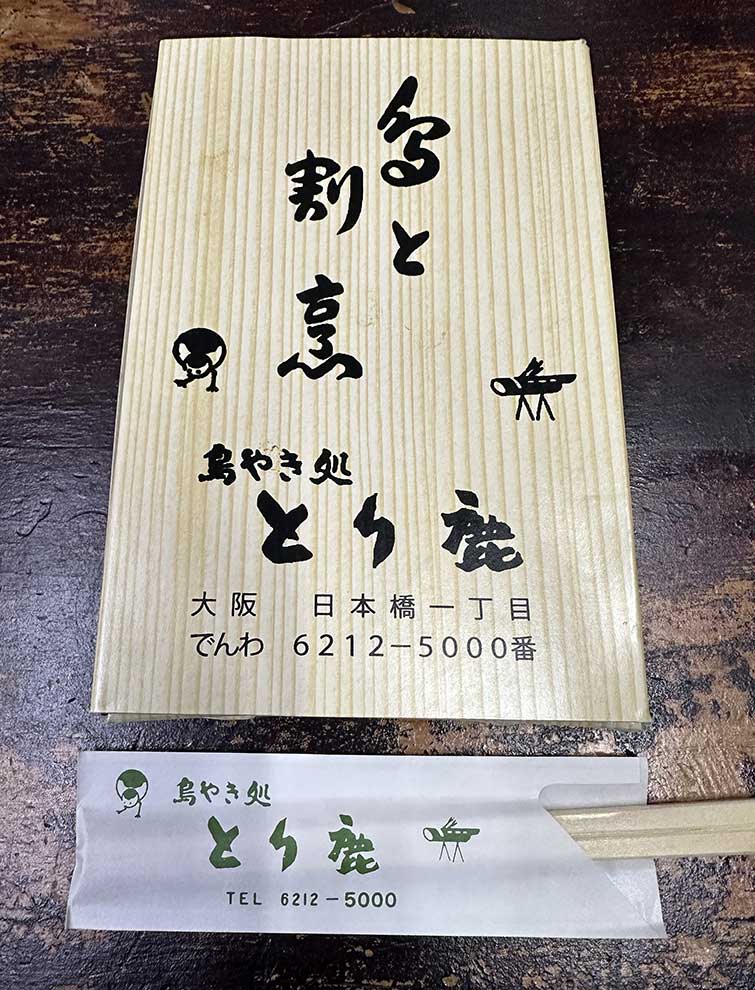 鳥と
割烹
鳥やき処
とり鹿
大阪　日本橋一丁目
でんわ　6212-5000番
鳥やき処
とり鹿
TEL 6212-5000